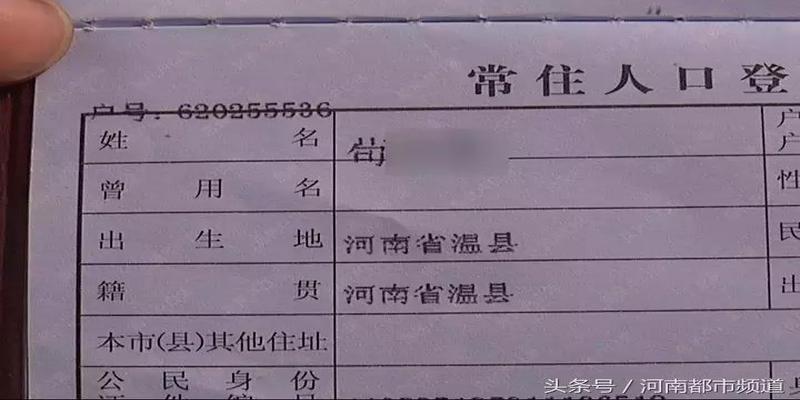 常住人口登
户号: 620255536
姓名
户
户
曾用名
性
出生地 河南省温县
民
籍贯 河南省温县
出
本市(县)其他住址
公民身份
头条号 / 河南都市频道